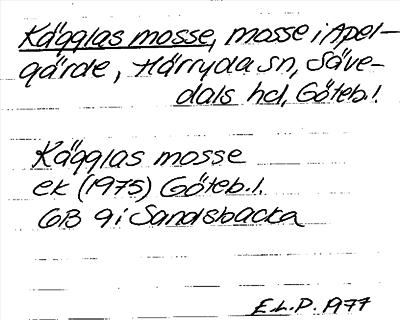 Kägglas mosse, mosse i Apel-
gärde, Härryda sn, Säve-
dals hd, Göteb. l.
Kägglas mosse
ek (1975) Göteb. l.
GB 9 i Sandsbacka
E.L.P. 1977